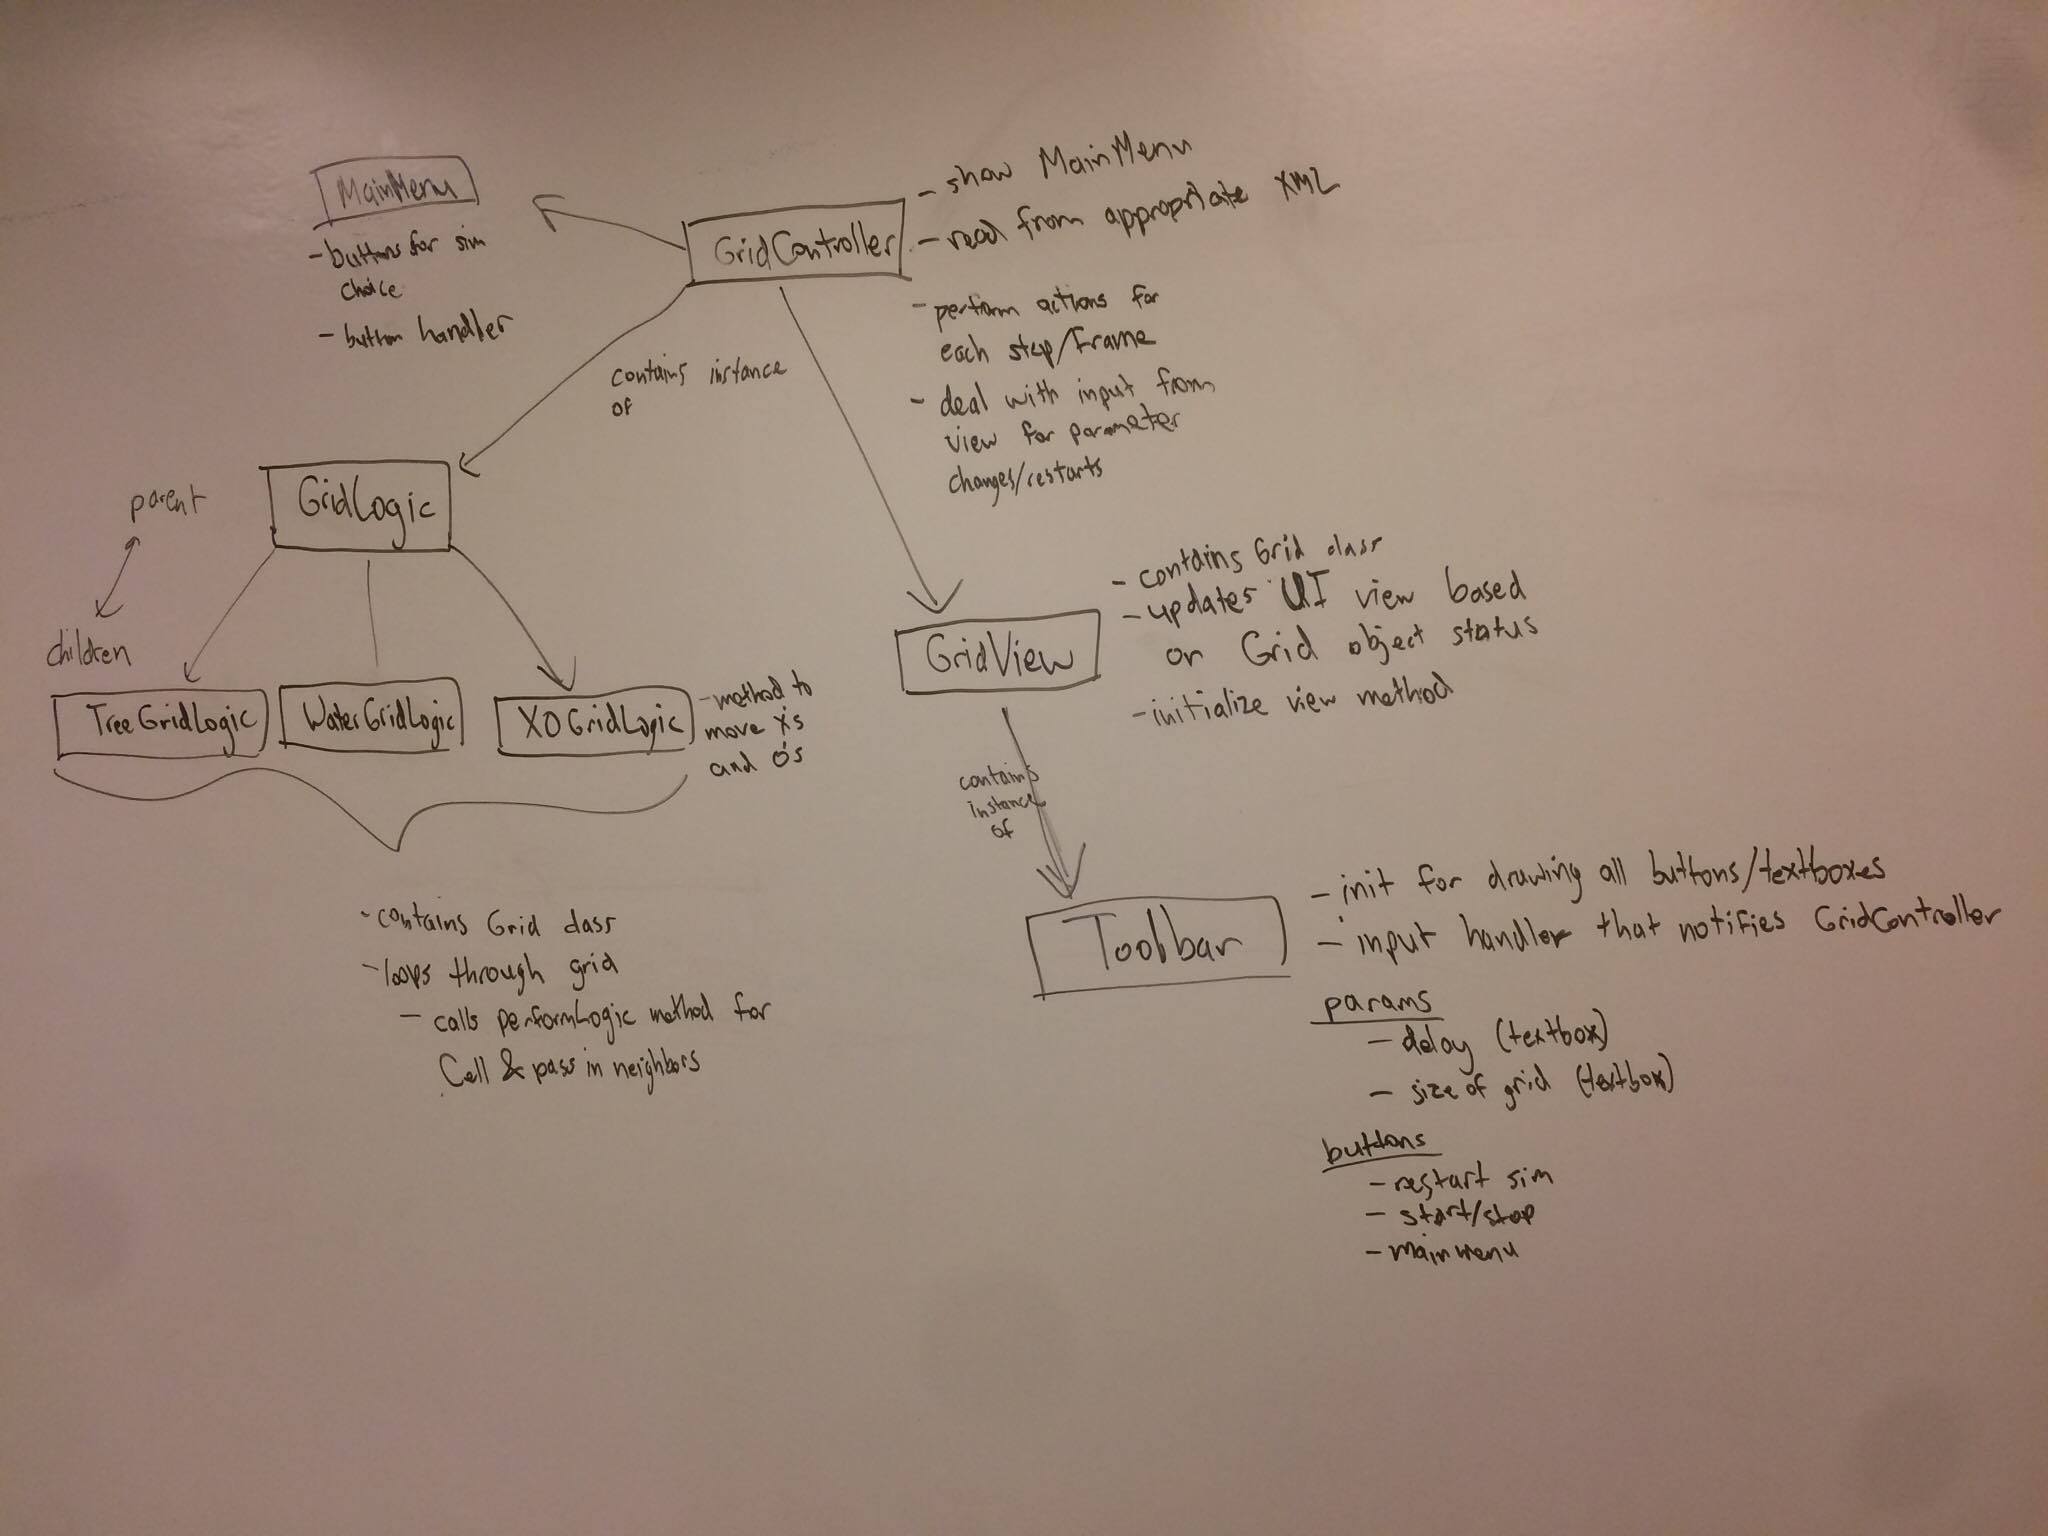 MainMenu
- buttons for sim
choice
- button handler
GridController
- show MainMenu
- read from appropriate XML
- perform actions for
each step/frame
- deal with input from
view for parameter
changes/restarts
contains instance
of
parent
children
GridLogic
TreeGridLogic
WaterGridLogic
XOGridLogic
- method to
move X's
and O's
- contains Grid class
- loops through grid
- calls performLogic method for
Cell & pass in neighbors
GridView
- contains Grid class
- updates UI view based
on Grid object status
- initialize view method
contains
instance
of
Toolbar
- init for drawing all buttons/textboxes
- input handler that notifies GridController
params
- delay (textbox)
- size of grid (textbox)
buttons
- restart sim
- start/stop
- main menu